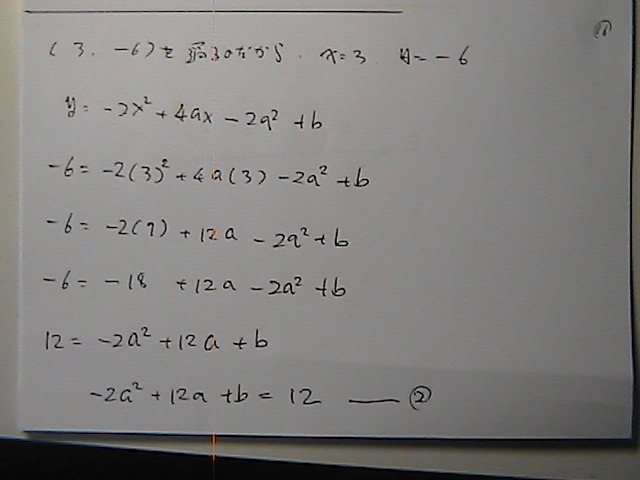 ⑪
(3, -6)を通るのだから. x=3 y=-6
y= -2x² + 4ax - 2a² + b
-6= -2(3)² + 4a(3) - 2a² + b
-6= -2(9) + 12a - 2a² + b
-6= -18 + 12a - 2a² + b
12= -2a² + 12a + b
-2a² + 12a + b = 12 —— ②